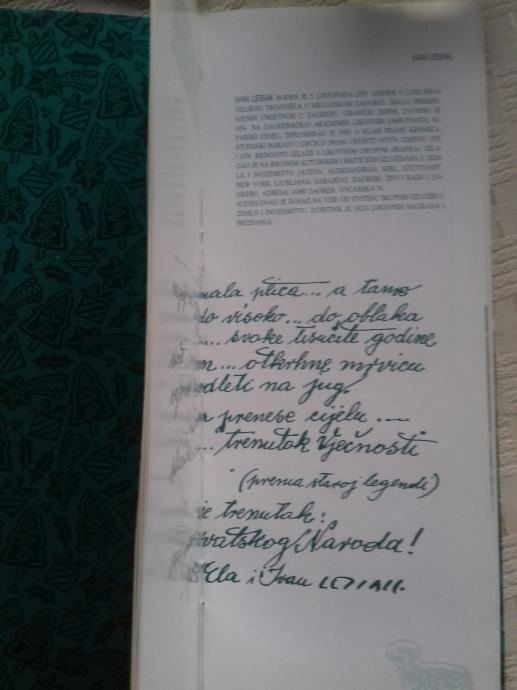 IVAN LESIAK
IVAN LESIAK ROĐEN JE 5. LISTOPADA 1929. GODINE U LUKI KRAJ
VELIKOG TRGOVIŠĆA U HRVATSKOM ZAGORJU. ŠKOLU PRIMIJE-
NJENIH UMJETNOSTI U ZAGREBU, GRAFIČKI SMJER, ZAVRŠIO JE
NA ZAGREBAČKOJ AKADEMIJI LIKOVNIH UMJETNOSTI,
ODJEL, DIPLOMIRAO JE 1959. U KLASI FRANE KRŠINIĆA.
STUDIJSKI BORAVI U GRČKOJ I EGIPTU
I 1978. REDOVITO IZLAŽE S LIKOVNOM GRUPOM IZLA-
GAO JE NA BROJNIM AUTORSKIM I KRITIČKIM IZLOŽBAMA U ZEM-
LJI I INOZEMSTVU (ATENA, ALEKSANDRIJA, KIEL, STUTTGART,
NEW YORK, LJUBLJANA, SARAJEVO, ZAGREB). ŽIVI I RADI U ZA-
GREBU. ADRESA: 41000 ZAGREB, VOĆARSKA
SUDJELOVAO JE DOSAD NA VIŠE OD STOTINU SKUPNIH IZLOŽBI U
ZEMLJI I INOZEMSTVU. DOBITNIK JE NIZA LIKOVNIH NAGRADA I
PRIZNANJA.
mala ptica... a tamo
do visoko... do oblaka
... svake tisućite godine
... otkrhne mrvicu
odleti na jug.
prenese cijelu ...
... trenutak Vječnosti
(prema staroj legendi)
je trenutak:
Hrvatskog Naroda!
Ela i Ivan LESIAK.